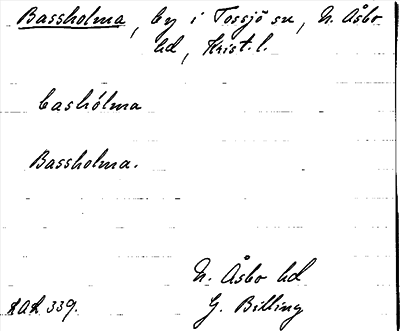 Bassholma, by i Tossjö sn, N. Åsbo
hd, Krist. l.
bashólma
Bassholma.
N. Åsbo hd
KAK 339. G. Billing